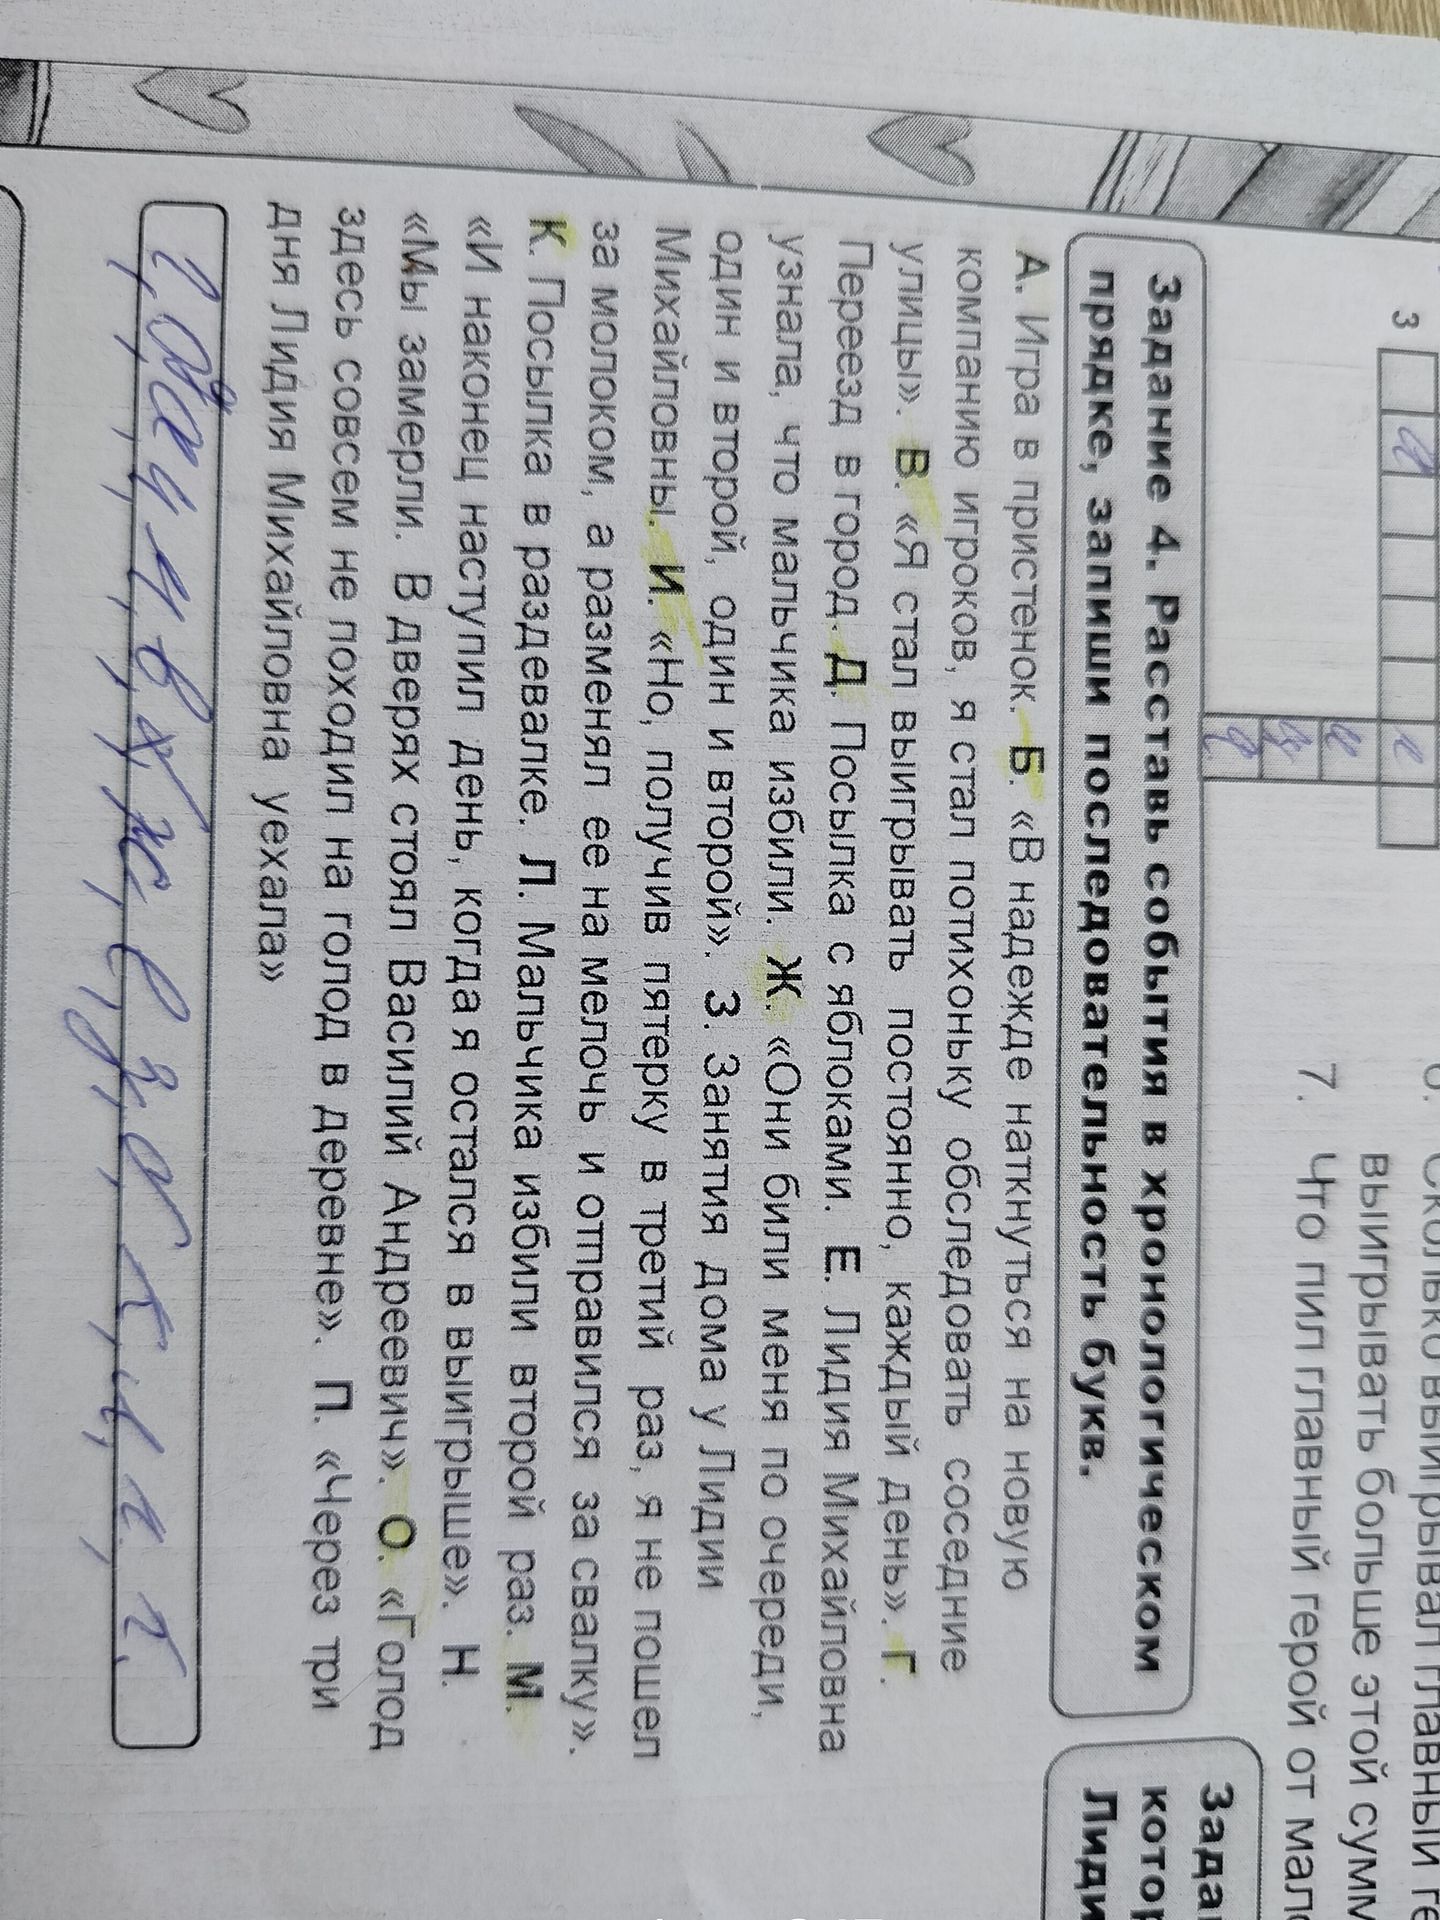 3
и
е
и
и
е
выигрывать больше этой сумм
7. Что пил главный герой от мало
Задание 4. Расставь события в хронологическом
прядке, запиши последовательность букв.
А. Игра в пристенок. Б. «В надежде наткнуться на новую
компанию игроков, я стал потихоньку обследовать соседние
улицы». В. «Я стал выигрывать постоянно, каждый день». Г.
Переезд в город. Д. Посылка с яблоками. Е. Лидия Михайловна
узнала, что мальчика избили. Ж. «Они били меня по очереди,
один и второй, один и второй». З. Занятия дома у Лидии
Михайловны. И. «Но, получив пятерку в третий раз, я не пошел
за молоком, а разменял ее на мелочь и отправился за свалку».
К. Посылка в раздевалке. Л. Мальчика избили второй раз. М.
«И наконец наступил день, когда я остался в выигрыше». Н.
«Мы замерли. В дверях стоял Василий Андреевич». О. «Голод
здесь совсем не походил на голод в деревне». П. «Через три
дня Лидия Михайловна уехала»
Зада
котор
Лиди